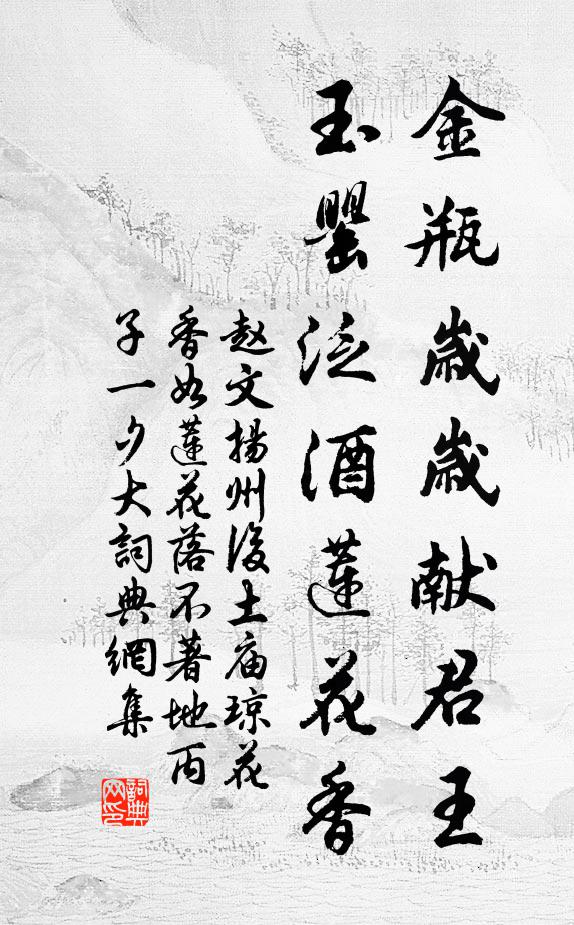 金瓶歲歲献君王
玉罌泛酒蓮花香
赵文揚州後土庙琼花
香如蓮花落不著地丙
子一夕大詞典網集
詞典网印